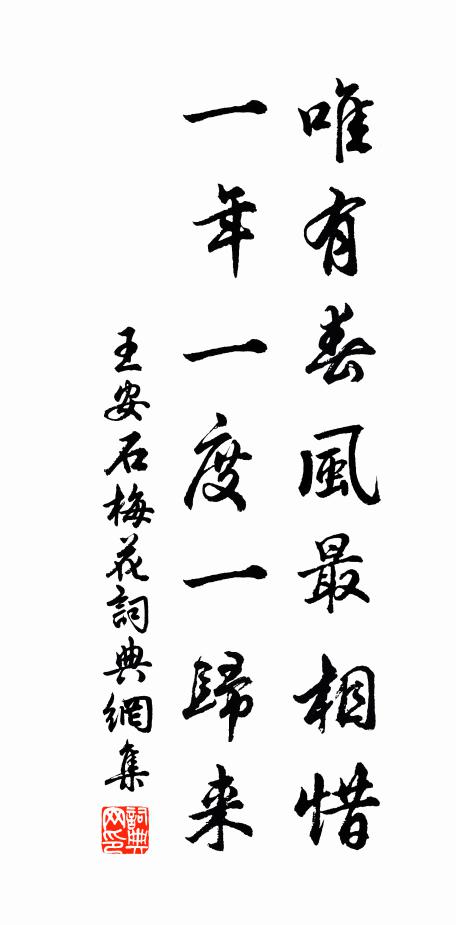 唯有春風最相惜
一年一度一歸来
王安石梅花詞典網集
詞典網印